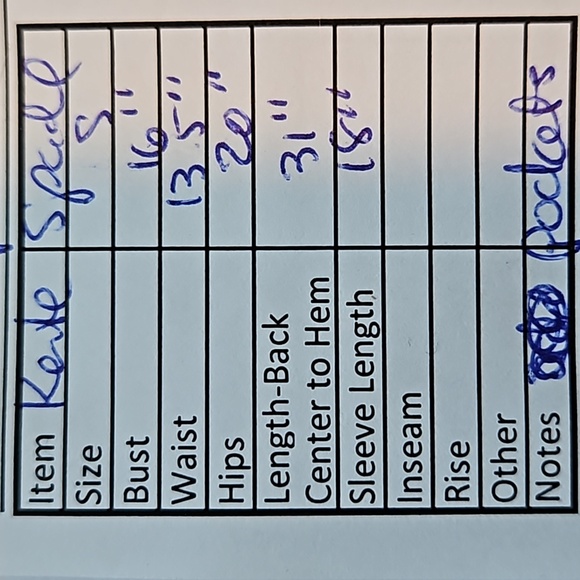 Item Kate Spade
Size S
Bust 16"
Waist 13.5"
Hips 20"
Length-Back 31"
Center to Hem
Sleeve Length 18"
Inseam
Rise
Other
Notes pockets